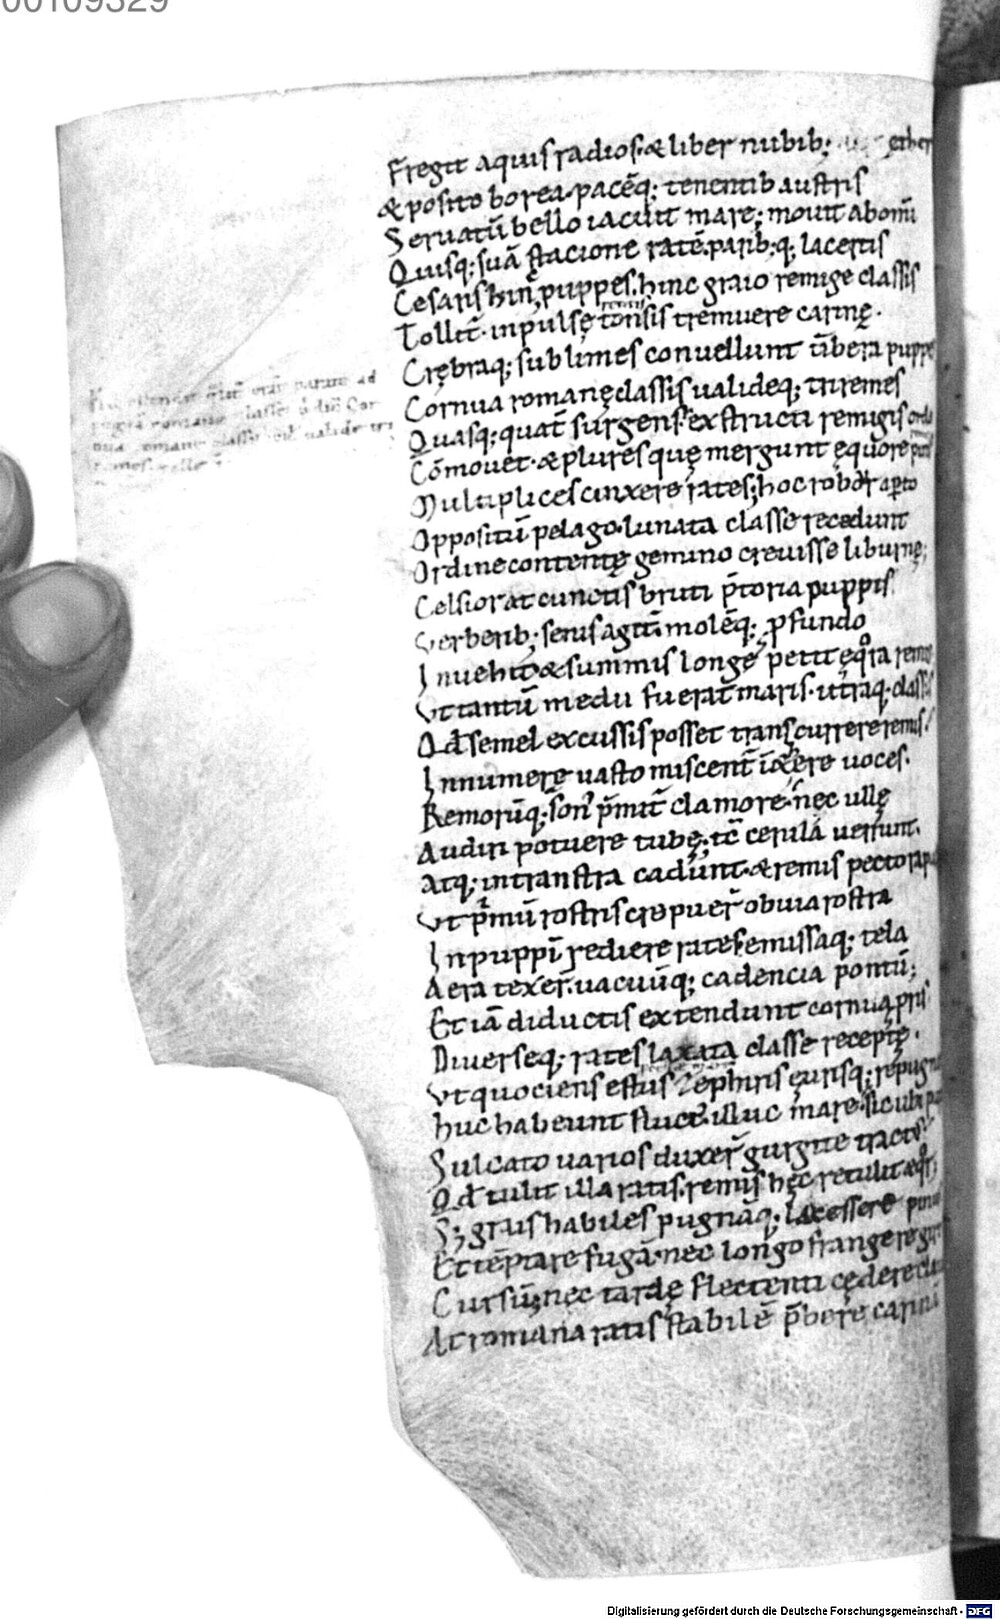 00109329
Fregit aquis radios & liber nubib; ether
& posito borea. pacēq; tenentib austris
Seruatū bello iacuit mare; mouit ab omī
Quisq; suā stacione ratē. parib; q; lacertis
Cesaris hin puppes. hinc graio remige classis
Tollit̄. inpulsę tonsis tremuere carinę.
remis
Crębraq; sublimes conuellunt ūbera puppes
Cornua romanę classis ualideq; triremes
Quasq; quat̄ surgens. exstructi remigis ordo
Cōmouet. & plures quę mergunt ęquore
Multiplices cinxere rates; hoc robur aperto
Oppositū pelago. lunata classe recedunt
Ordine contentę gemino creuisse liburnę;
Celsior at cunctis bruti p̄toria puppis
Verberib; senis agit̄. molēq; pfundo
Inuehit & summis longe petit ęqra remis
Vt tantū medii fuerat maris. utraq; classis
Qđ semel excussis posset transcurrere remis
Innumerę uasto miscent̄ īęthere uoces.
Remorūq; son p̄mit̄ clamore. nec ullę
Audiri potuere tubę; tc̄ cerula uerrunt.
Atq; in transtra cadunt. & remis pectora
Vt p̄mū rostris crepuer̄ obuia rostra
In puppī rediere rates. emissaq; tela
Aera texer̄. uacuūq; cadencia pontū;
Et iā diductis extendunt cornua pris
Diuerseq; rates laxata classe receptę.
Vt quociens estus Zephiris eurisq; repugnat
huc habeunt fluct̄. illuc mare. sic ubi
Sulcato uarios duxer̄ gurgite tract
Qđ tulit illa ratis. remis hęc retulit ęqr
S; grais habiles pugnāq; lacessere pinus
Et tēptare fugā. nec longo frangere
Cursū; nec tardę flectenti cędere
At romana ratis stabilē p̄bere carinā
Digitalisierung gefördert durch die Deutsche Forschungsgemeinschaft - DFG